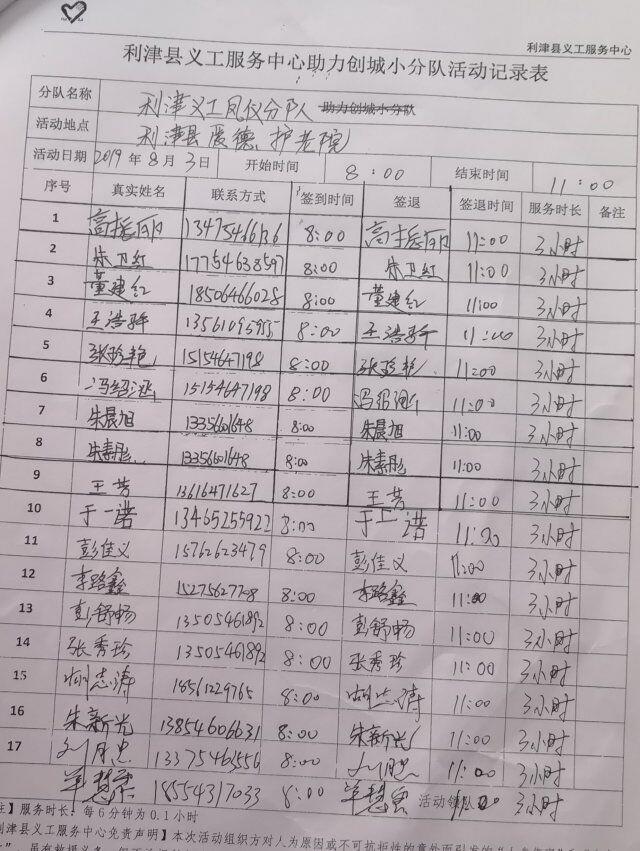 利津县义工服务中心
利津县义工服务中心助力创城小分队活动记录表
分队名称 利津义工凤仪分队 助力创城小分队
活动地点 利津县爱德护老院
活动日期 2019年8月3日 开始时间 8:00 结束时间 11:00
序号 真实姓名 联系方式 签到时间 签退 签退时间 服务时长 备注
1 高振丽 13475466136 8:00 高振丽 11:00 3小时
2 宋卫红 17754638597 8:00 宋卫红 11:00 3小时
3 董建红 18506466028 8:00 董建红 11:00 3小时
4 王浩骅 13561095955 8:00 王浩骅 11:00 3小时
5 张珍艳 15154647198 8:00 张珍艳 11:00 3小时
6 冯绍 15154647198 8:00 冯绍 11:00 3小时
7 朱晨旭 13356601648 8:00 朱晨旭 11:00 3小时
8 朱素彤 13356601648 8:00 朱素彤 11:00 3小时
9 王芳 13616471627 8:00 王芳 11:00 3小时
10 于一诺 13465255922 8:00 于一诺 11:00 3小时
11 彭佳义 15762623479 8:00 彭佳义 11:00 3小时
12 李璐鑫 15275627708 8:00 李璐鑫 11:00 3小时
13 彭舒畅 13505461892 8:00 彭舒畅 11:00 3小时
14 张秀珍 13505461892 8:00 张秀珍 11:00 3小时
15 志涛 18561229765 8:00 11:00 3小时
16 朱新光 13854606631 8:00 朱新光 11:00 3小时
17 刘月忠 13375465556 8:00 刘月忠 11:00 3小时
18554317033 8:00 活动领队 11:00 3小时
】服务时长：每6分钟为0.1小时
利津县义工服务中心免责声明】本次活动组织方对人为原因或不可抗拒性的意外而引发的